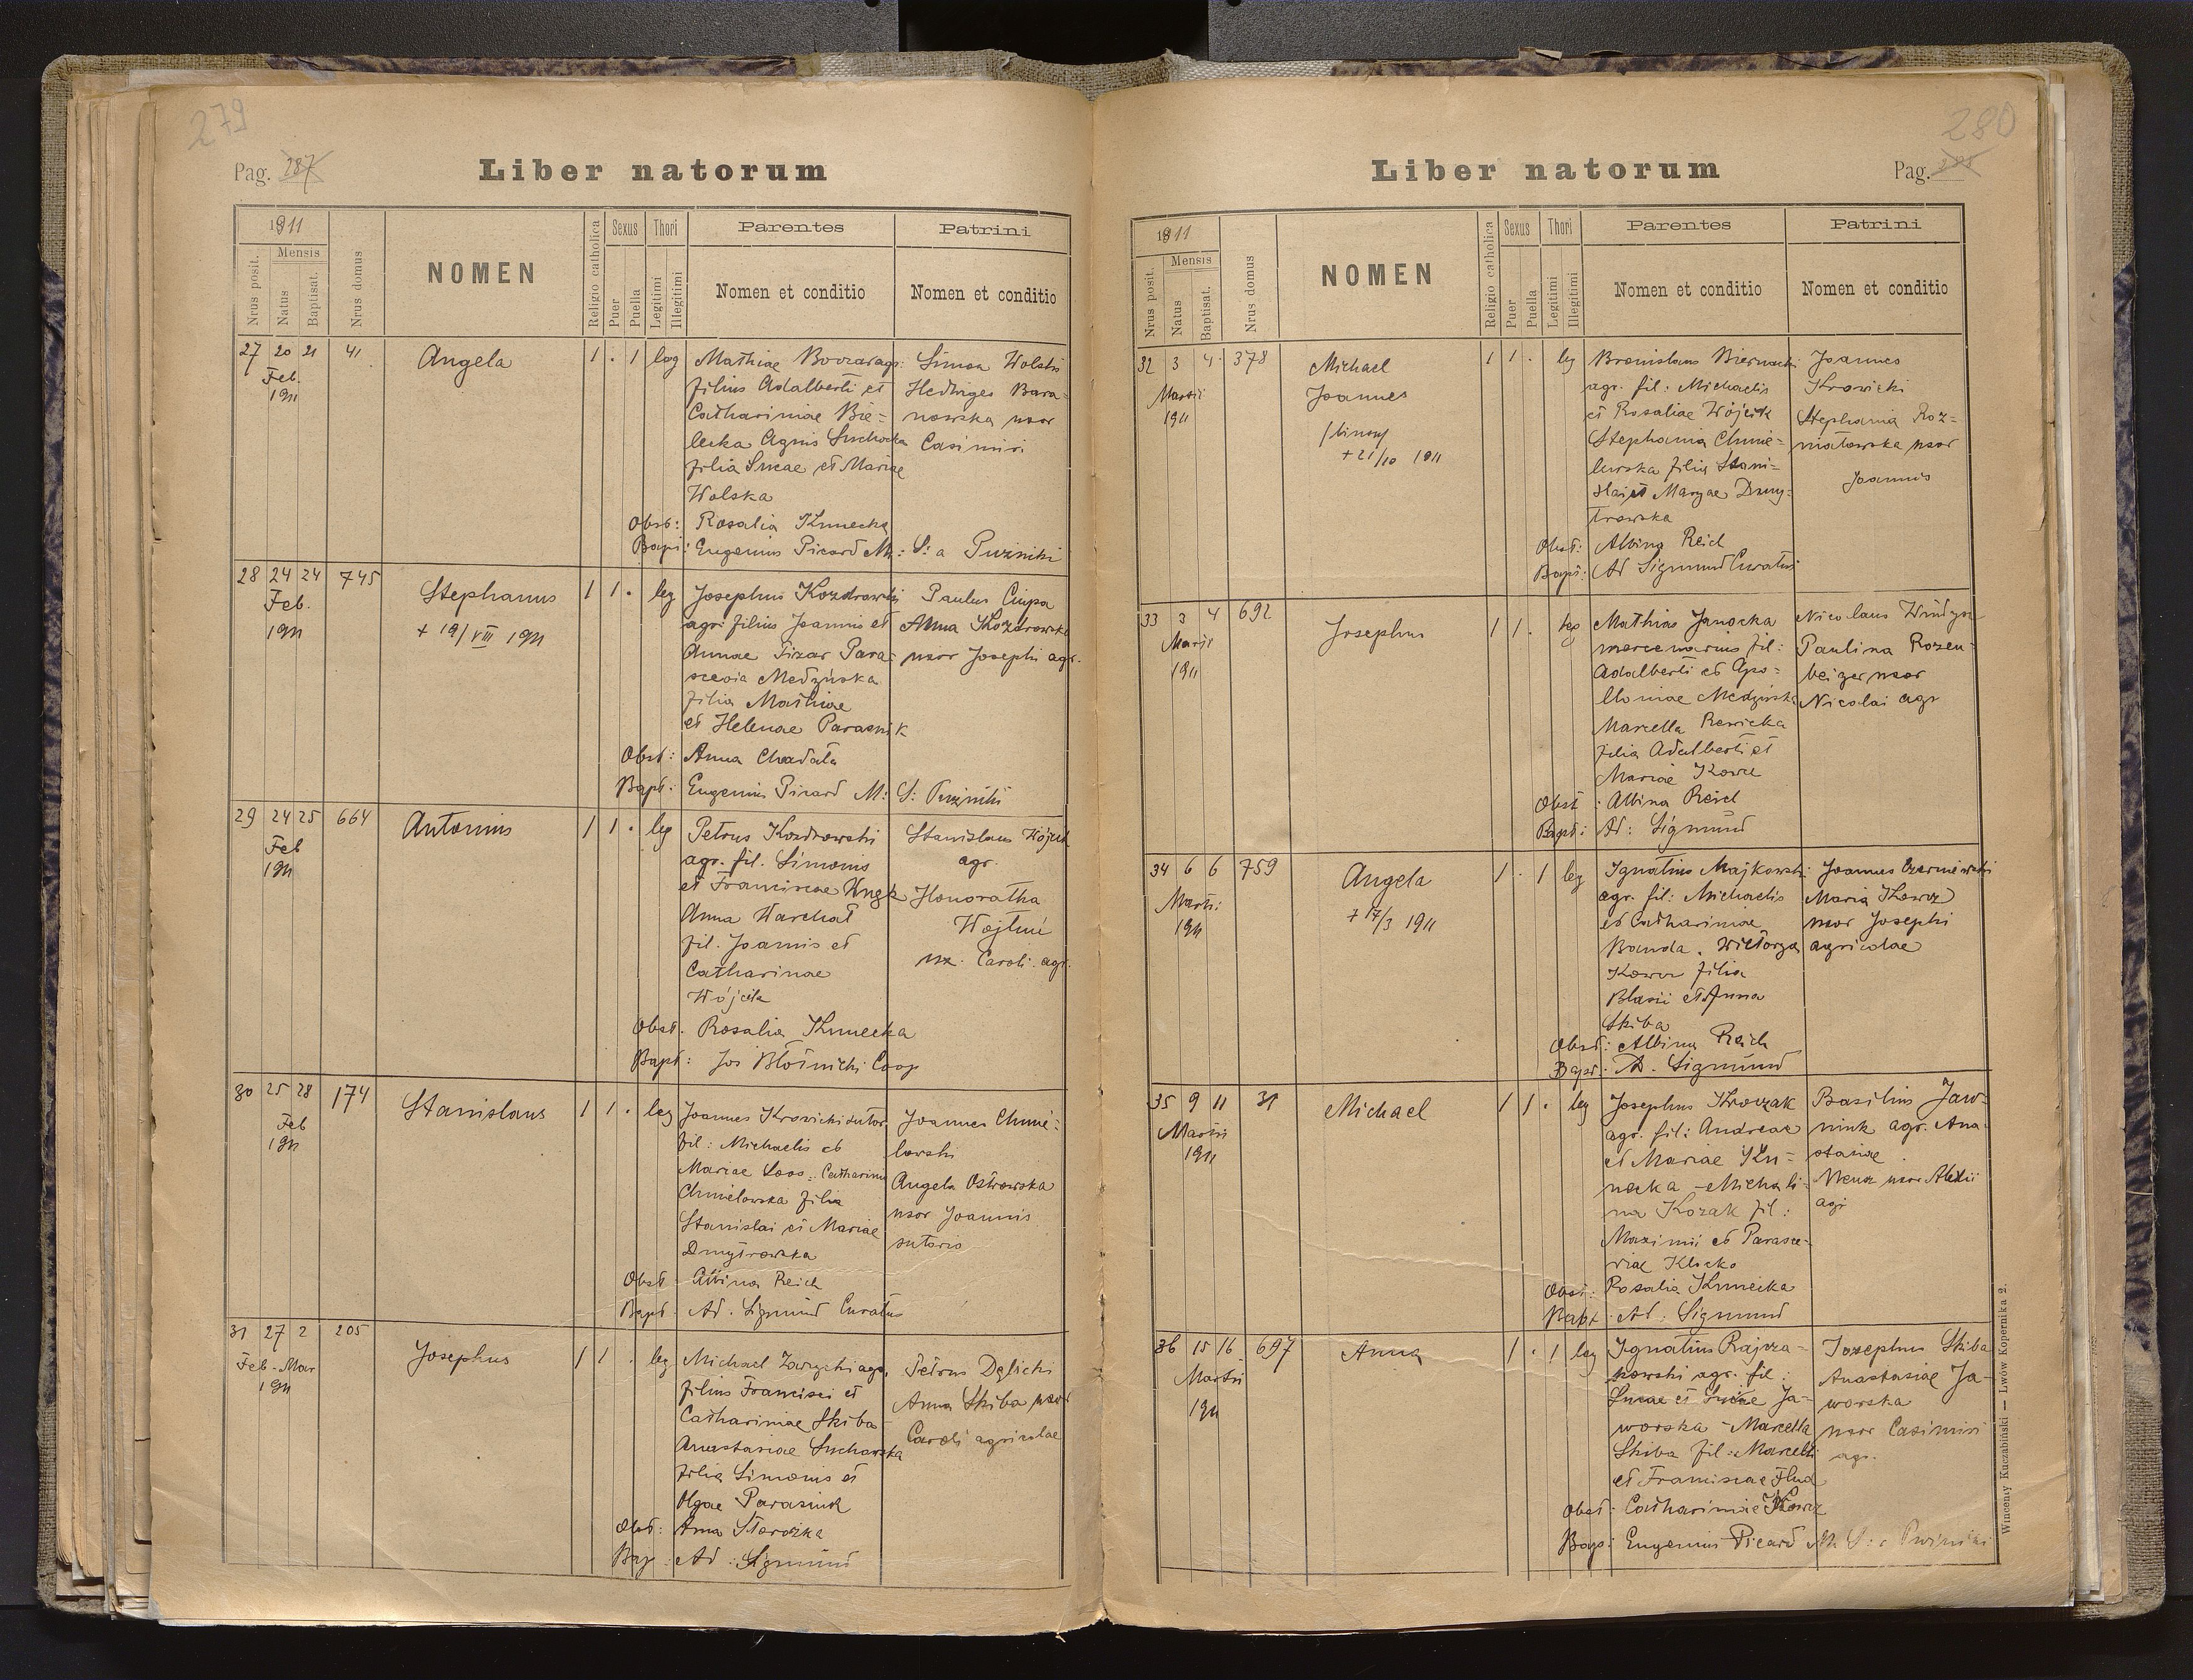 279
Pag. 287
Liber natorum
1911
Nrus posit.
Mensis
Natus
Baptisat.
Nrus domus
NOMEN
Religio catholica
Sexus
Puer
Puella
Thori
Legitimi
Illegitimi
Parentes
Nomen et conditio
Patrini
Nomen et conditio
27 20 21 41 Angela 1 . 1 leg
Feb.
1911
Mathiae
filius Adalberti et
Catharinae Bie-
lecka Agnis Suchocka
filia Lucae et Mariae
Wolska
Simon Wolski
Hedviges Bara-
nowska uxor
Casimiri
Obst: Rosalia Kmuecka
Bapt: Eugenius Picard M: S: a Puźniki
28 24 24 745 Stephanus 1 1 . leg
Feb.
1911
+ 19/VIII 1911
Josephus Kozdrowski
agr: filius Joannis et
Annae Pizar Para-
scevia Medzińska
filia Mathiae
et Helenae Parasiuk
Paulus Ciupa
Anna Kozdrowska
uxor Josephi agr.
Obst: Anna Chadała
Bapt: Eugenius Picard M: S: Puźniki
29 24 25 664 Antonius 1 1 . leg
Feb
1911
Petrus Kozdrowski
agr. fil. Simonis
et Franciscae
Anna Warchał
fil. Joannis et
Catharinae
Wójcik
Stanislaus Wójcik
agr.
Honoratha
ux. Caroli agr.
Obst. Rosalia Kmuecka
Bapt: Jos Błotnicki Coop
30 25 28 174 Stanislaus 1 1 . leg
Feb
1911
Joannes Krowicki sutor
fil: Michaelis et
Mariae Loos. Catharina
Chmielowska filia
Stanislai et Mariae
Dmytrowska
Joannes Chmie-
lowski
Angela Ostrowska
uxor Joannis
sutoris
Obst Albina Reich
Bapt. Ad. Sigmund Curatus
31 27 2 205 Josephus 1 1 . leg
Feb - Mar
1911
Michael Zarzycki agr.
filius Francisci et
Catharinae Skiba
Anastasiae Suchowska
filia Simonis et
Olgae Parasiuk
Petrus Dęlicki
Anna Skiba uxor
Caroli agricolae
Obst: Anna
Bap: Ad: Sigmund
280
Liber natorum
Pag.
1911
Nrus posit.
Mensis
Natus
Baptisat.
Nrus domus
NOMEN
Religio catholica
Sexus
Puer
Puella
Thori
Legitimi
Illegitimi
Parentes
Nomen et conditio
Patrini
Nomen et conditio
32 3 4 378 Michael 1 1 . leg
Martii
1911
Joannes
+ 21/10 1911
Bronislaus Biernacki
agr. fil: Michaelis
et Rosaliae Wójcik
Stephania Chmie-
lewska filia Stani-
slai et Maryae Dmy-
trowska
Joannes
Krowicki
Stephania Roz-
niatowska uxor
Joannis
Obst: Albina Reich
Bapt: Ad Sigmund Curatus
33 3 4 692 Josephus 1 1 . leg
Martii
1911
Mathias Janocka
mercenarius fil:
Adalberti et Apo-
lloniae Medzińska
Marcella Rewicka
filia Adalberti et
Mariae Kowcz
Nicolaus
Paulina Rozen-
beiger uxor
Nicolai agr
Obst: Albina Reich
Bapt: Ad: Sigmund
34 6 6 759 Angela 1 . 1 leg
Martii
1911
+ 17/3 1911
Ignatius Majkowski
agr. fil: Michaelis
et Catharinae
Banda. Wiktorya
Kowcz filia
Blasii et Anna
Skiba
Joannes Czerniewski
Maria Kowcz
uxor Josephi
agricolae
Obst: Albina Reich
Bapt. A. Sigmund
35 9 11 31 Michael 1 1 . leg
Martii
1911
Josephus Krowzak
agr. fil: Andreae
et Mariae Ku-
necka - Michali-
na Kozak fil:
Maximi et Parasce-
viae Klocko
Basilius Jaw-
niuk agr. Ana-
stasiae
uxor Alexii
agr
Obst: Rosalia Kmuecka
Bapt. Ad: Sigmund
36 15 16 697 Anna 1 . 1 leg
Martii
1911
Ignatius Rajcza-
kowski agr. fil:
Lucae et Luciae Ja-
worska - Marcella
Skiba fil: Marcelli
et Franciscae Flud
Josephus Skiba
Anastasiae Ja-
worska
uxor Casimiri
agr.
Obst: Catharinae Kowcz
Bap: Eugenius Picard M S: a Puźniki
Wincenty Kuczabiński — Lwów Kopernika 2.